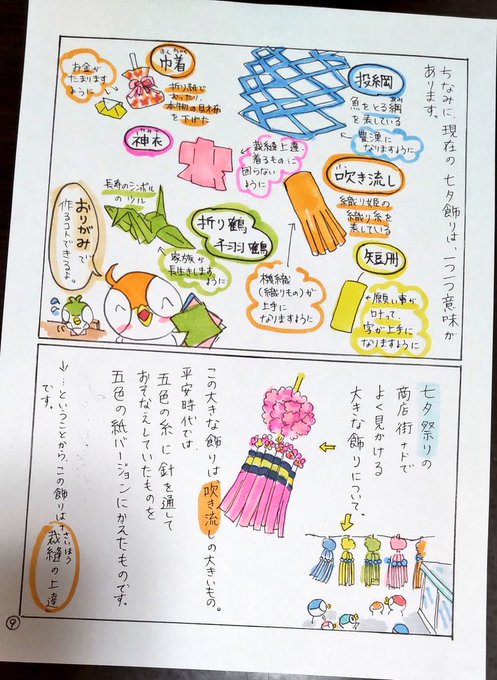 ちなみに、現在の七夕飾りは、一つ一つ意味が
あります。
投網
とあみ
魚をとる網
を表している
豊漁に
なりますように
巾着
きんちゃく
お金が
たまります
ように
折り紙で
おったり、
本物の財布
を下げた
神衣
かみこ
裁縫上達
着るものに
困らない
ように
吹き流し
織り姫の
織り糸を
表している
機織
(織りもの)が
上手に
なりますように
長寿のシンボル
のツル
折り鶴
千羽鶴
家族が
長生きします
ように
短冊
願い事が
叶って、
字が上手に
なりますように
おりがみで
作るコトもできるよ。
七夕祭りの
商店街ナドで
よく見かける
大きな飾りについて。
この大きな飾りは吹き流しの大きいもの。
平安時代では
五色の糸に針を通して
おそなえしていたものを
五色の紙バージョンにかえたものです。
↓…ということから、この飾りは「裁縫の上達」
さいほう
です。
9